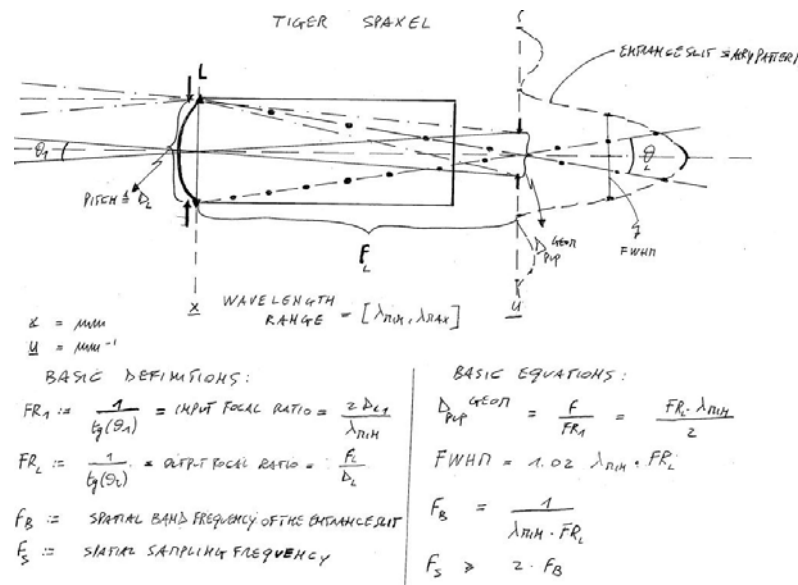 TIGER SPAXEL
ENTRANCE SLIT = AIRY PATTERN
L
θ₁
θ_L
PITCH ≜ D_L
F_L
D_PUP^GEOM
FWHM
x
u
WAVELENGTH
RANGE = [λMIN, λMAX]
x = mm
u = mm⁻¹
BASIC DEFINITIONS:
FR₁ := 1/tg(θ₁) = INPUT FOCAL RATIO = 2 D_L1/λMIN
FR_L := 1/tg(θ_L) = OUTPUT FOCAL RATIO = F_L/D_L
F_B := SPATIAL BAND FREQUENCY OF THE ENTRANCE SLIT
F_S := SPATIAL SAMPLING FREQUENCY
BASIC EQUATIONS:
D_PUP^GEOM = F/FR₁ = FR_L · λMIN/2
FWHM = 1.02 λMIN · FR_L
F_B = 1/λMIN · FR_L
F_S ≥ 2 · F_B